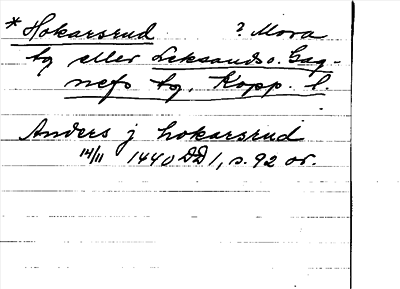 *Hokarsrud ? Mora
tg eller Leksands o. Gag-
nefs tg, Kopp. l.
Anders j hokarsrud
14/11 1440 DD 1, s. 92 or.